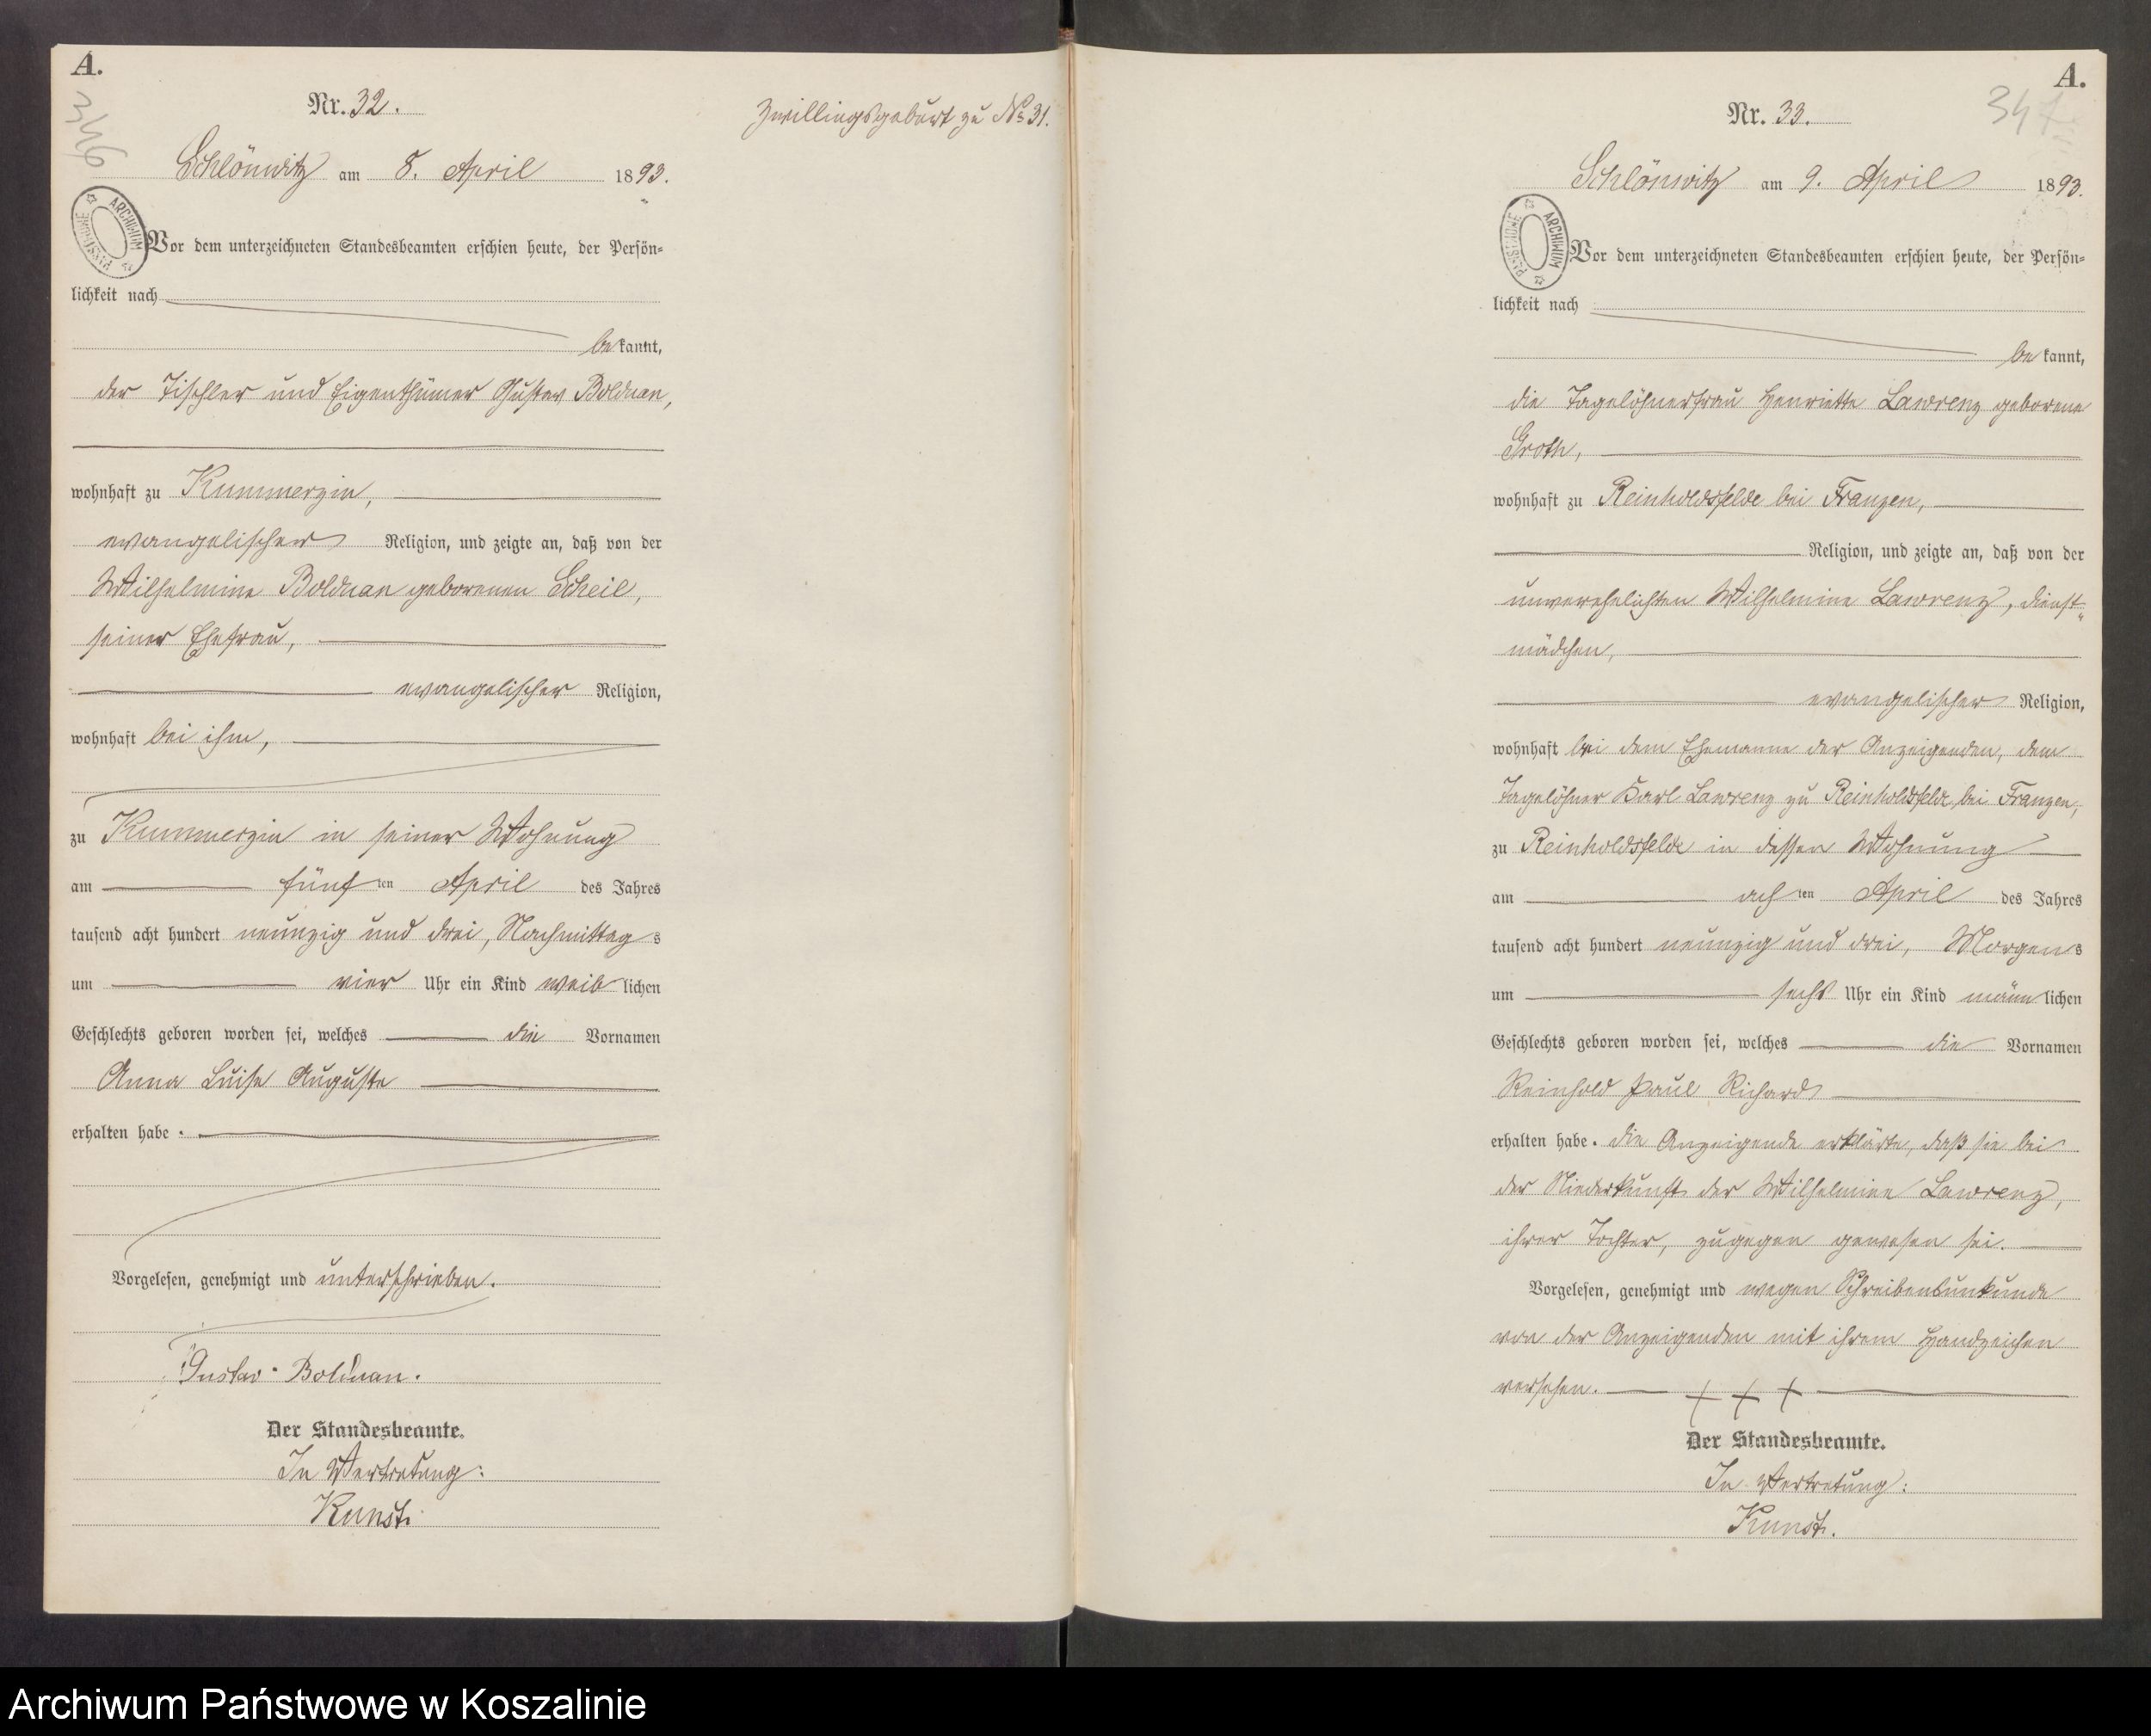 A.
346
Nr. 32.
Zwillingsgeburt zu No 31.
Schlönwitz am 8. April 1893.
ARCHIWUM PAŃSTWOWE
Vor dem unterzeichneten Standesbeamten erschien heute, der Persön-
lichkeit nach
bekannt,
der Tischler und Eigenthümer Gustav Bolduan,
wohnhaft zu Kummerzin,
evangelischer Religion, und zeigte an, daß von der
Wilhelmine Bolduan geborenen Scheil,
seiner Ehefrau,
evangelischer Religion,
wohnhaft bei ihm,
zu Kummerzin in seiner Wohnung
am fünften April des Jahres
tausend acht hundert neunzig und drei, Nachmittags
um vier Uhr ein Kind weiblichen
Geschlechts geboren worden sei, welches die Vornamen
Anna Luise Auguste
erhalten habe.
Vorgelesen, genehmigt und unterschrieben.
Gustav Bolduan.
Der Standesbeamte.
In Vertretung:
Kunst.
A.
347
Nr. 33.
Schlönwitz am 9. April 1893.
ARCHIWUM PAŃSTWOWE
Vor dem unterzeichneten Standesbeamten erschien heute, der Persön-
lichkeit nach
bekannt,
die Tagelöhnerfrau Henriette Lawrenz geborene
Groth,
wohnhaft zu Reinholdsfelde bei Franzen,
Religion, und zeigte an, daß von der
unverehelichten Wilhelmine Lawrenz, Dienst-
mädchen,
evangelischer Religion,
wohnhaft bei dem Ehemanne der Anzeigenden, dem
Tagelöhner Karl Lawrenz zu Reinholdsfelde bei Franzen,
zu Reinholdsfelde in dessen Wohnung
am achten April des Jahres
tausend acht hundert neunzig und drei, Morgens
um sechs Uhr ein Kind männlichen
Geschlechts geboren worden sei, welches die Vornamen
Reinhold Paul Richard
erhalten habe. Die Anzeigende erklärte, daß sie bei
der Niederkunft der Wilhelmine Lawrenz,
ihrer Tochter, zugegen gewesen sei.
Vorgelesen, genehmigt und wegen Schreibensunkunde
von der Anzeigenden mit ihrem Handzeichen
versehen. + + +
Der Standesbeamte.
In Vertretung:
Kunst.
Archiwum Państwowe w Koszalinie